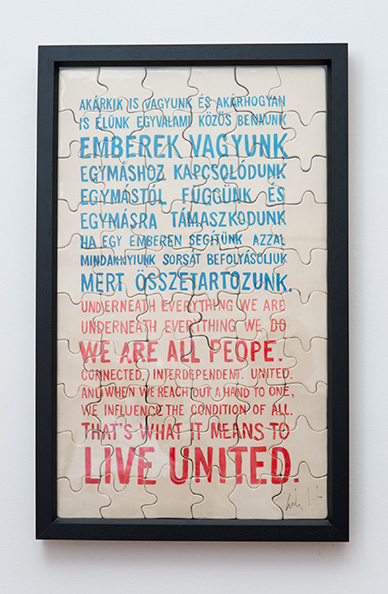 AKÁRKIK IS VAGYUNK ÉS AKÁRHOGYAN
IS ÉLÜNK EGYVALAMI KÖZÖS BENNÜNK
EMBEREK VAGYUNK
EGYMÁSHOZ KAPCSOLÓDUNK
EGYMÁSTÓL FÜGGÜNK ÉS
EGYMÁSRA TÁMASZKODUNK
HA EGY EMBEREN SEGÍTÜNK AZZAL
MINDANNYIUNK SORSÁT BEFOLYÁSOLJUK
MERT ÖSSZETARTOZUNK.
UNDERNEATH EVERYTHING WE ARE
UNDERNEATH EVERYTHING WE DO
WE ARE ALL PEOPE.
CONNECTED, INTERDEPENDENT. UNITED.
AND WHEN WE REACH OUT A HAND TO ONE,
WE INFLUENCE THE CONDITION OF ALL.
THAT'S WHAT IT MEANS TO
LIVE UNITED.